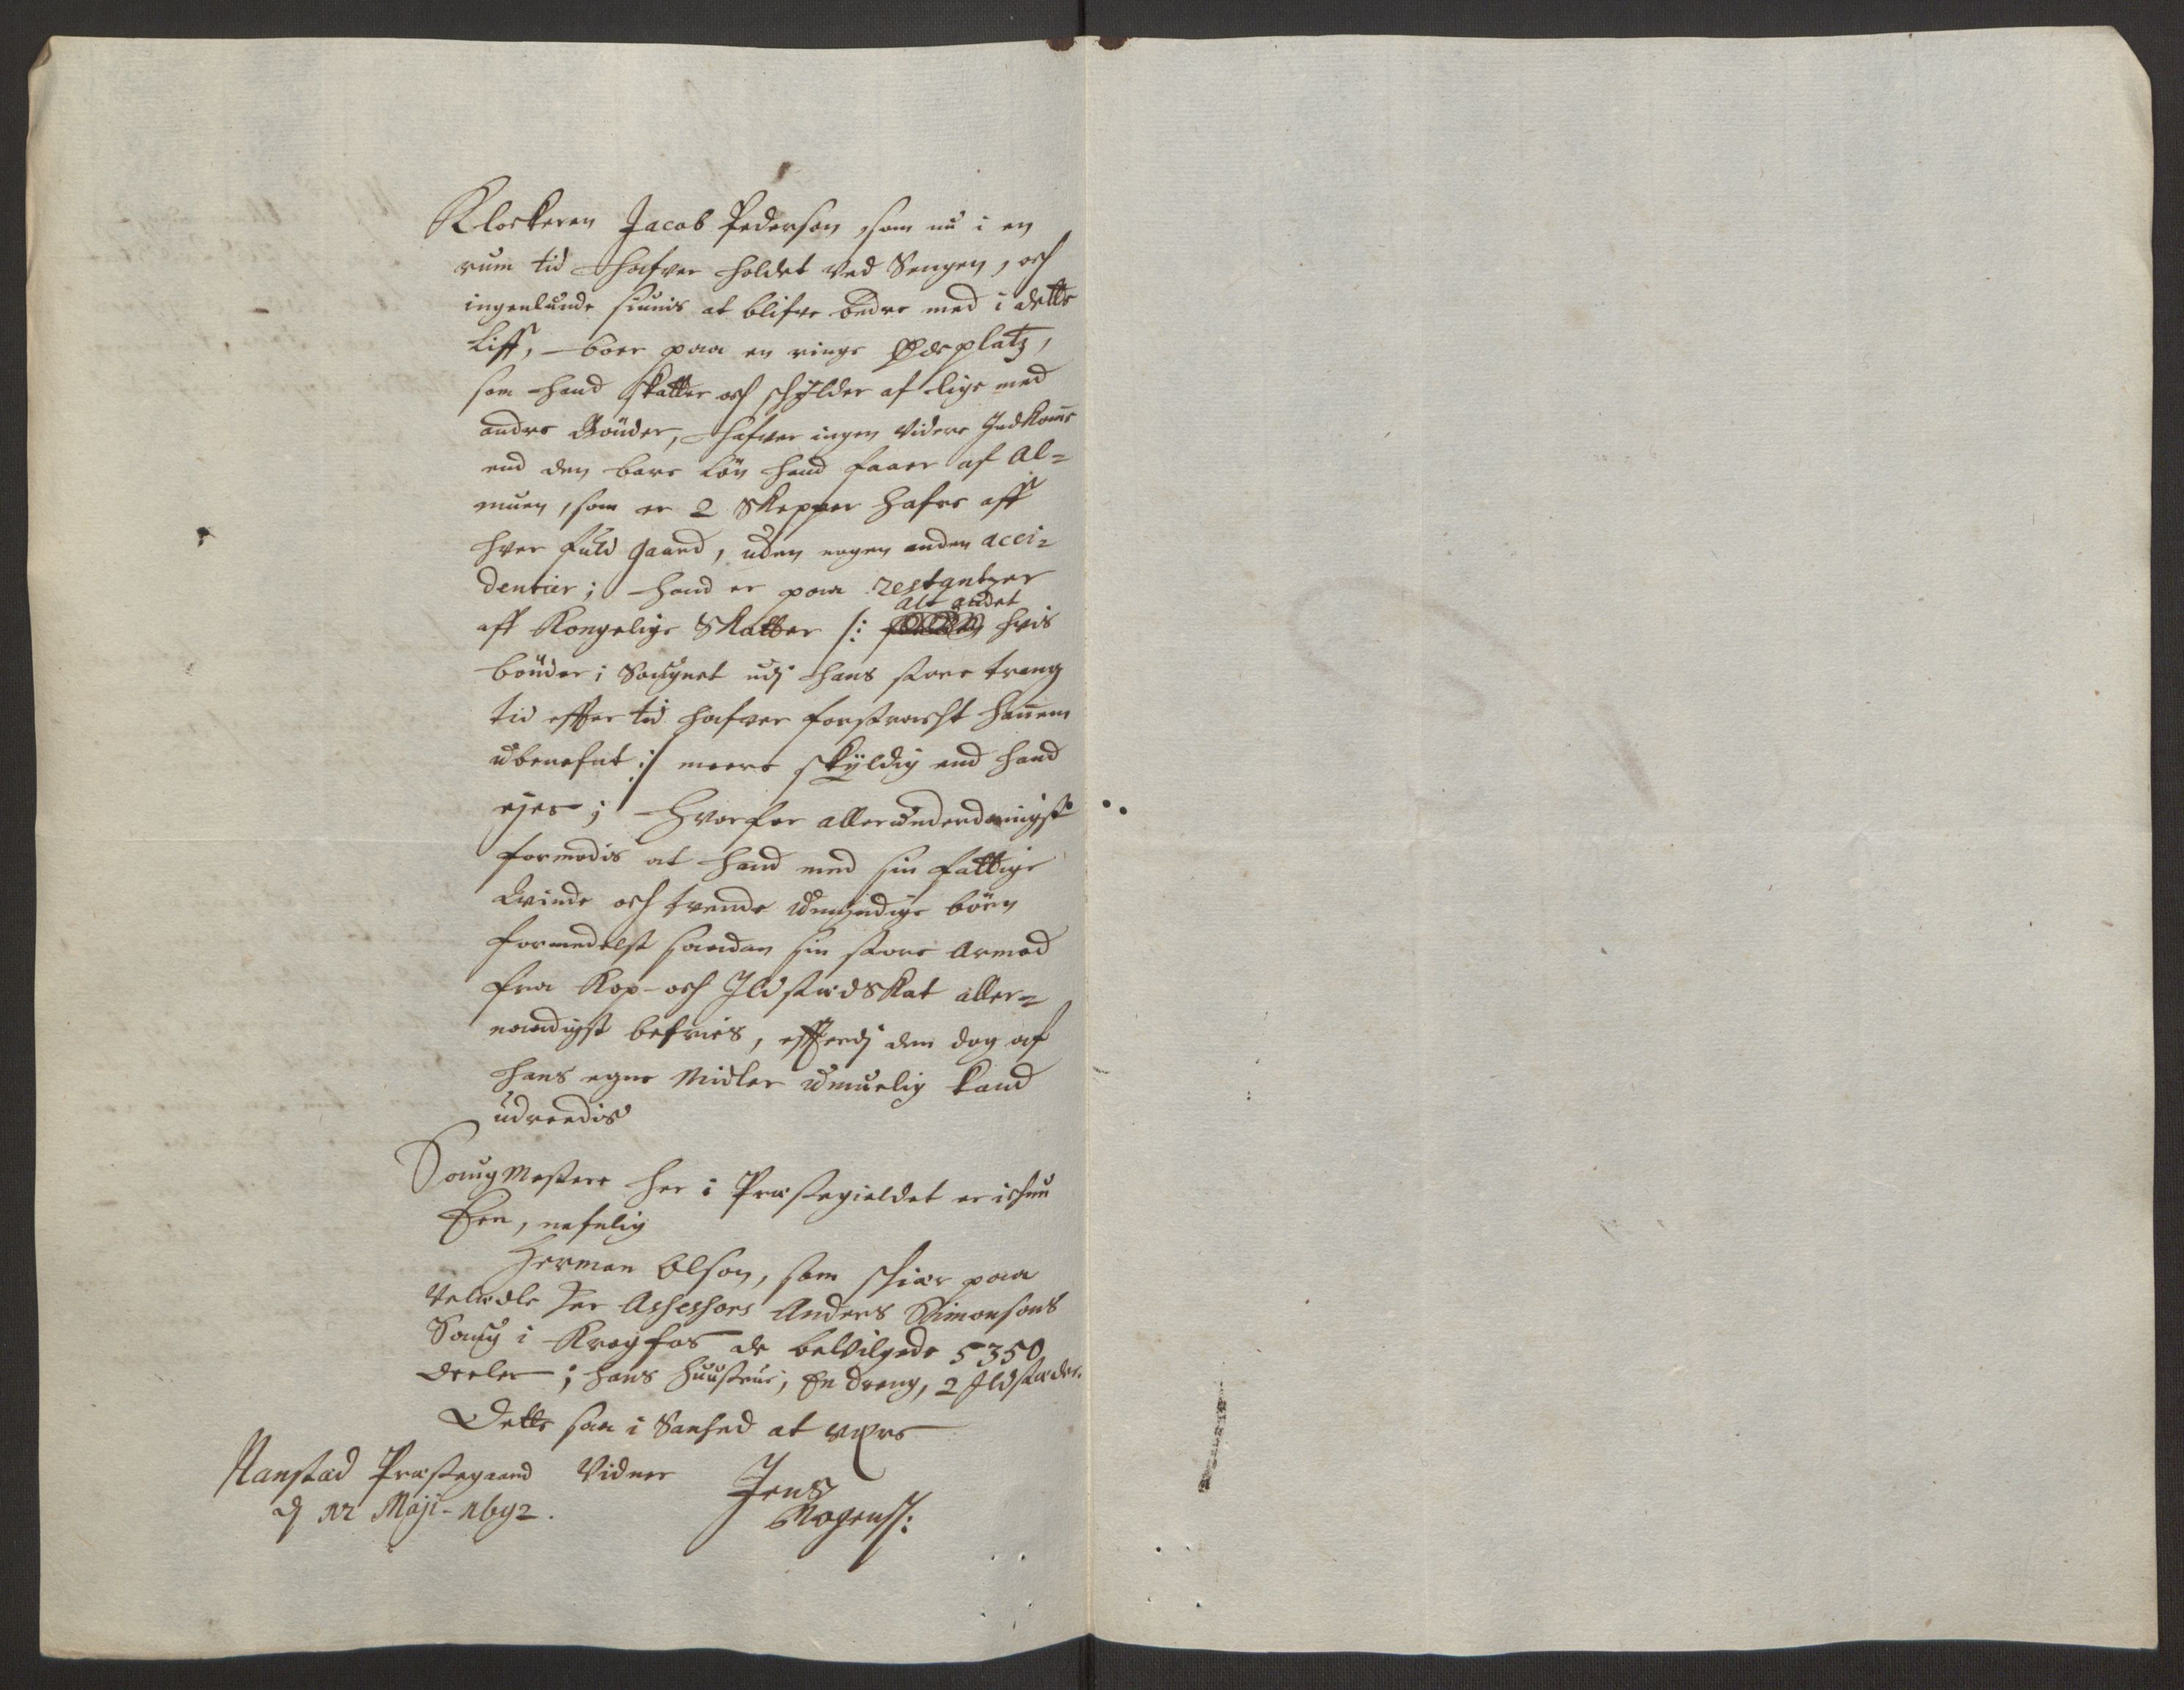 Klockeren Jacob Pedersøn, som nu i en
rum tid hafver holdet ved Sengen, och
ingenlunde siunis at blifve bedre med i dette
Liff, boer paa en ringe Ødeplatz,
som hand skatter och schylder af lige med
andre Bønder, hafver ingen videre Indkomme
end den bare Løn hand faaer af Al=
muen, som er 2 Skepper Hafre aff
hver fuld gaard, uden nogen anden acci=
dentier; hand er paa restantzer
alt andet
aff Kongelige Skatter /: hvis
bønder i Sougnet udj hans store trang
tid effter tid hafver forstracht hannem
ubenefnt :/ meere skyldig end hand
ejer; hvorfor allerunderdanigst
formodis at hand med sin fattige
Qvinde och trende umyndige børn
formedelst saadan sin store Armod
fra Kop- och Ildstædskat aller=
naadigst befries, effterdj den dog af
hans egne Midler umuelig kand
udreedis
Sougmestere her i Præstegieldet er ichun
Een, nefnlig
Herman Olsøn, som schiær paa
Velædle Her Assessors Anders Simonsøns
Soug i Kragfos de bevilgede 5350
deeler; hans Huustrue, En dreng, 2 Ildstæder.
Dette saa i Sanhed at være
Nanstad Præstegaard Vidner Jens
d 12 Maji- 1692. Mogenss: